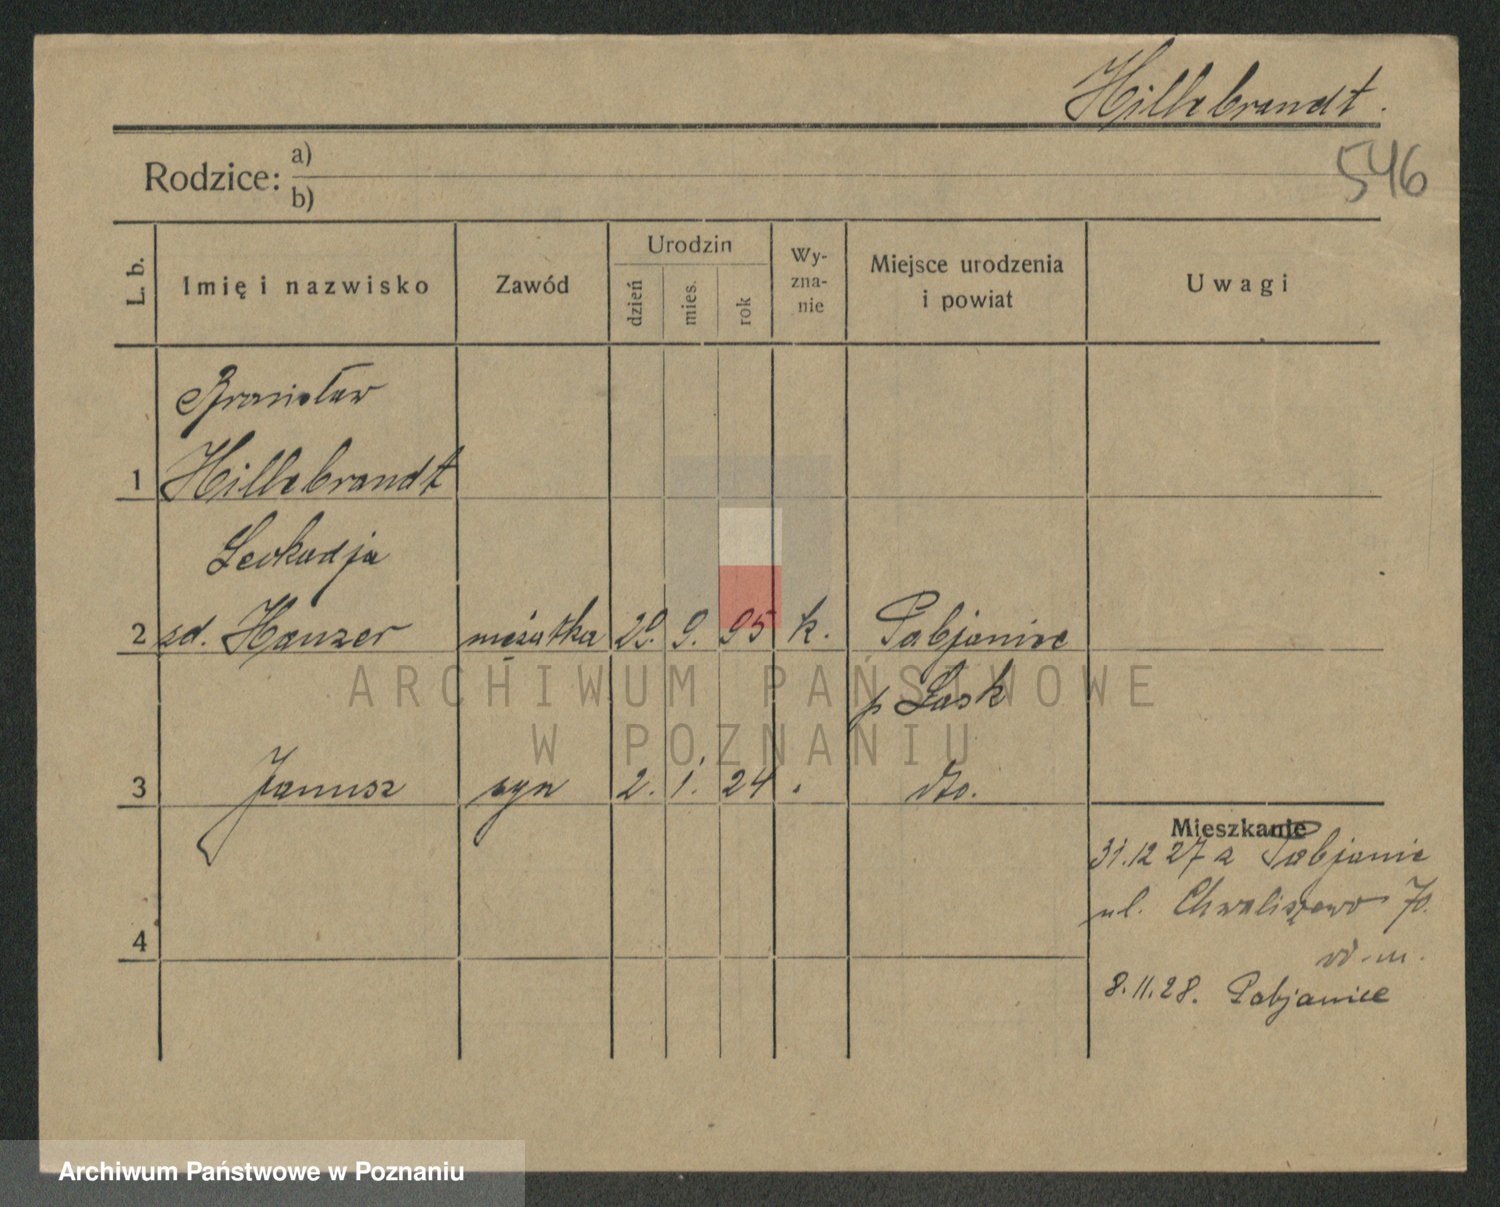 Hillebrandt.
546
Rodzice: a)
b)
L. b.
Imię i nazwisko
Zawód
Urodzin
dzień
mies.
rok
Wy-
zna-
nie
Miejsce urodzenia
i powiat
Uwagi
Bronisław
1 Hillebrandt
Leokadja
2 zd. Hanzer mężatka 29. 9. 95 k. Pabjanice
p Łask
3 Janusz syn 2. 1. 24 . dto.
Mieszkanie
31.12 27 z Pabjanic
ul. Chwaliszewo 70.
4
8.11.28. Pabjanice
ARCHIWUM PAŃSTWOWE
W POZNANIU
Archiwum Państwowe w Poznaniu